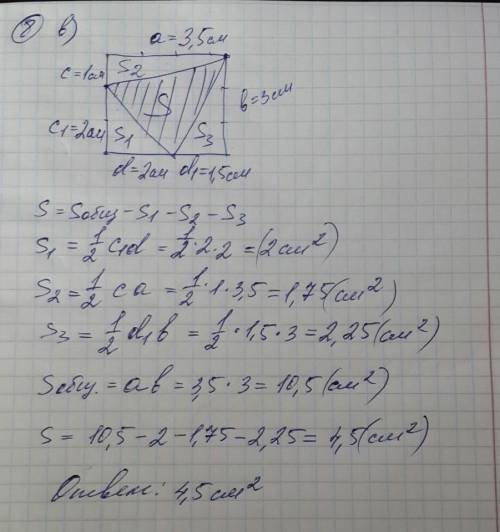 8 в)
a = 3,5 см
c = 1 см
S2
S
b = 3 см
c1 = 2 см
S1
S3
d = 2 см d1 = 1,5 см
S = Sобщ - S1 - S2 - S3
S1 = 1/2 c1d = 1/2 · 2 · 2 = (2 см²)
S2 = 1/2 c a = 1/2 · 1 · 3,5 = 1,75 (см²)
S3 = 1/2 d1 b = 1/2 · 1,5 · 3 = 2,25 (см²)
Sобщ. = ab = 3,5 · 3 = 10,5 (см²)
S = 10,5 - 2 - 1,75 - 2,25 = 4,5 (см²)
Ответ: 4,5 см²